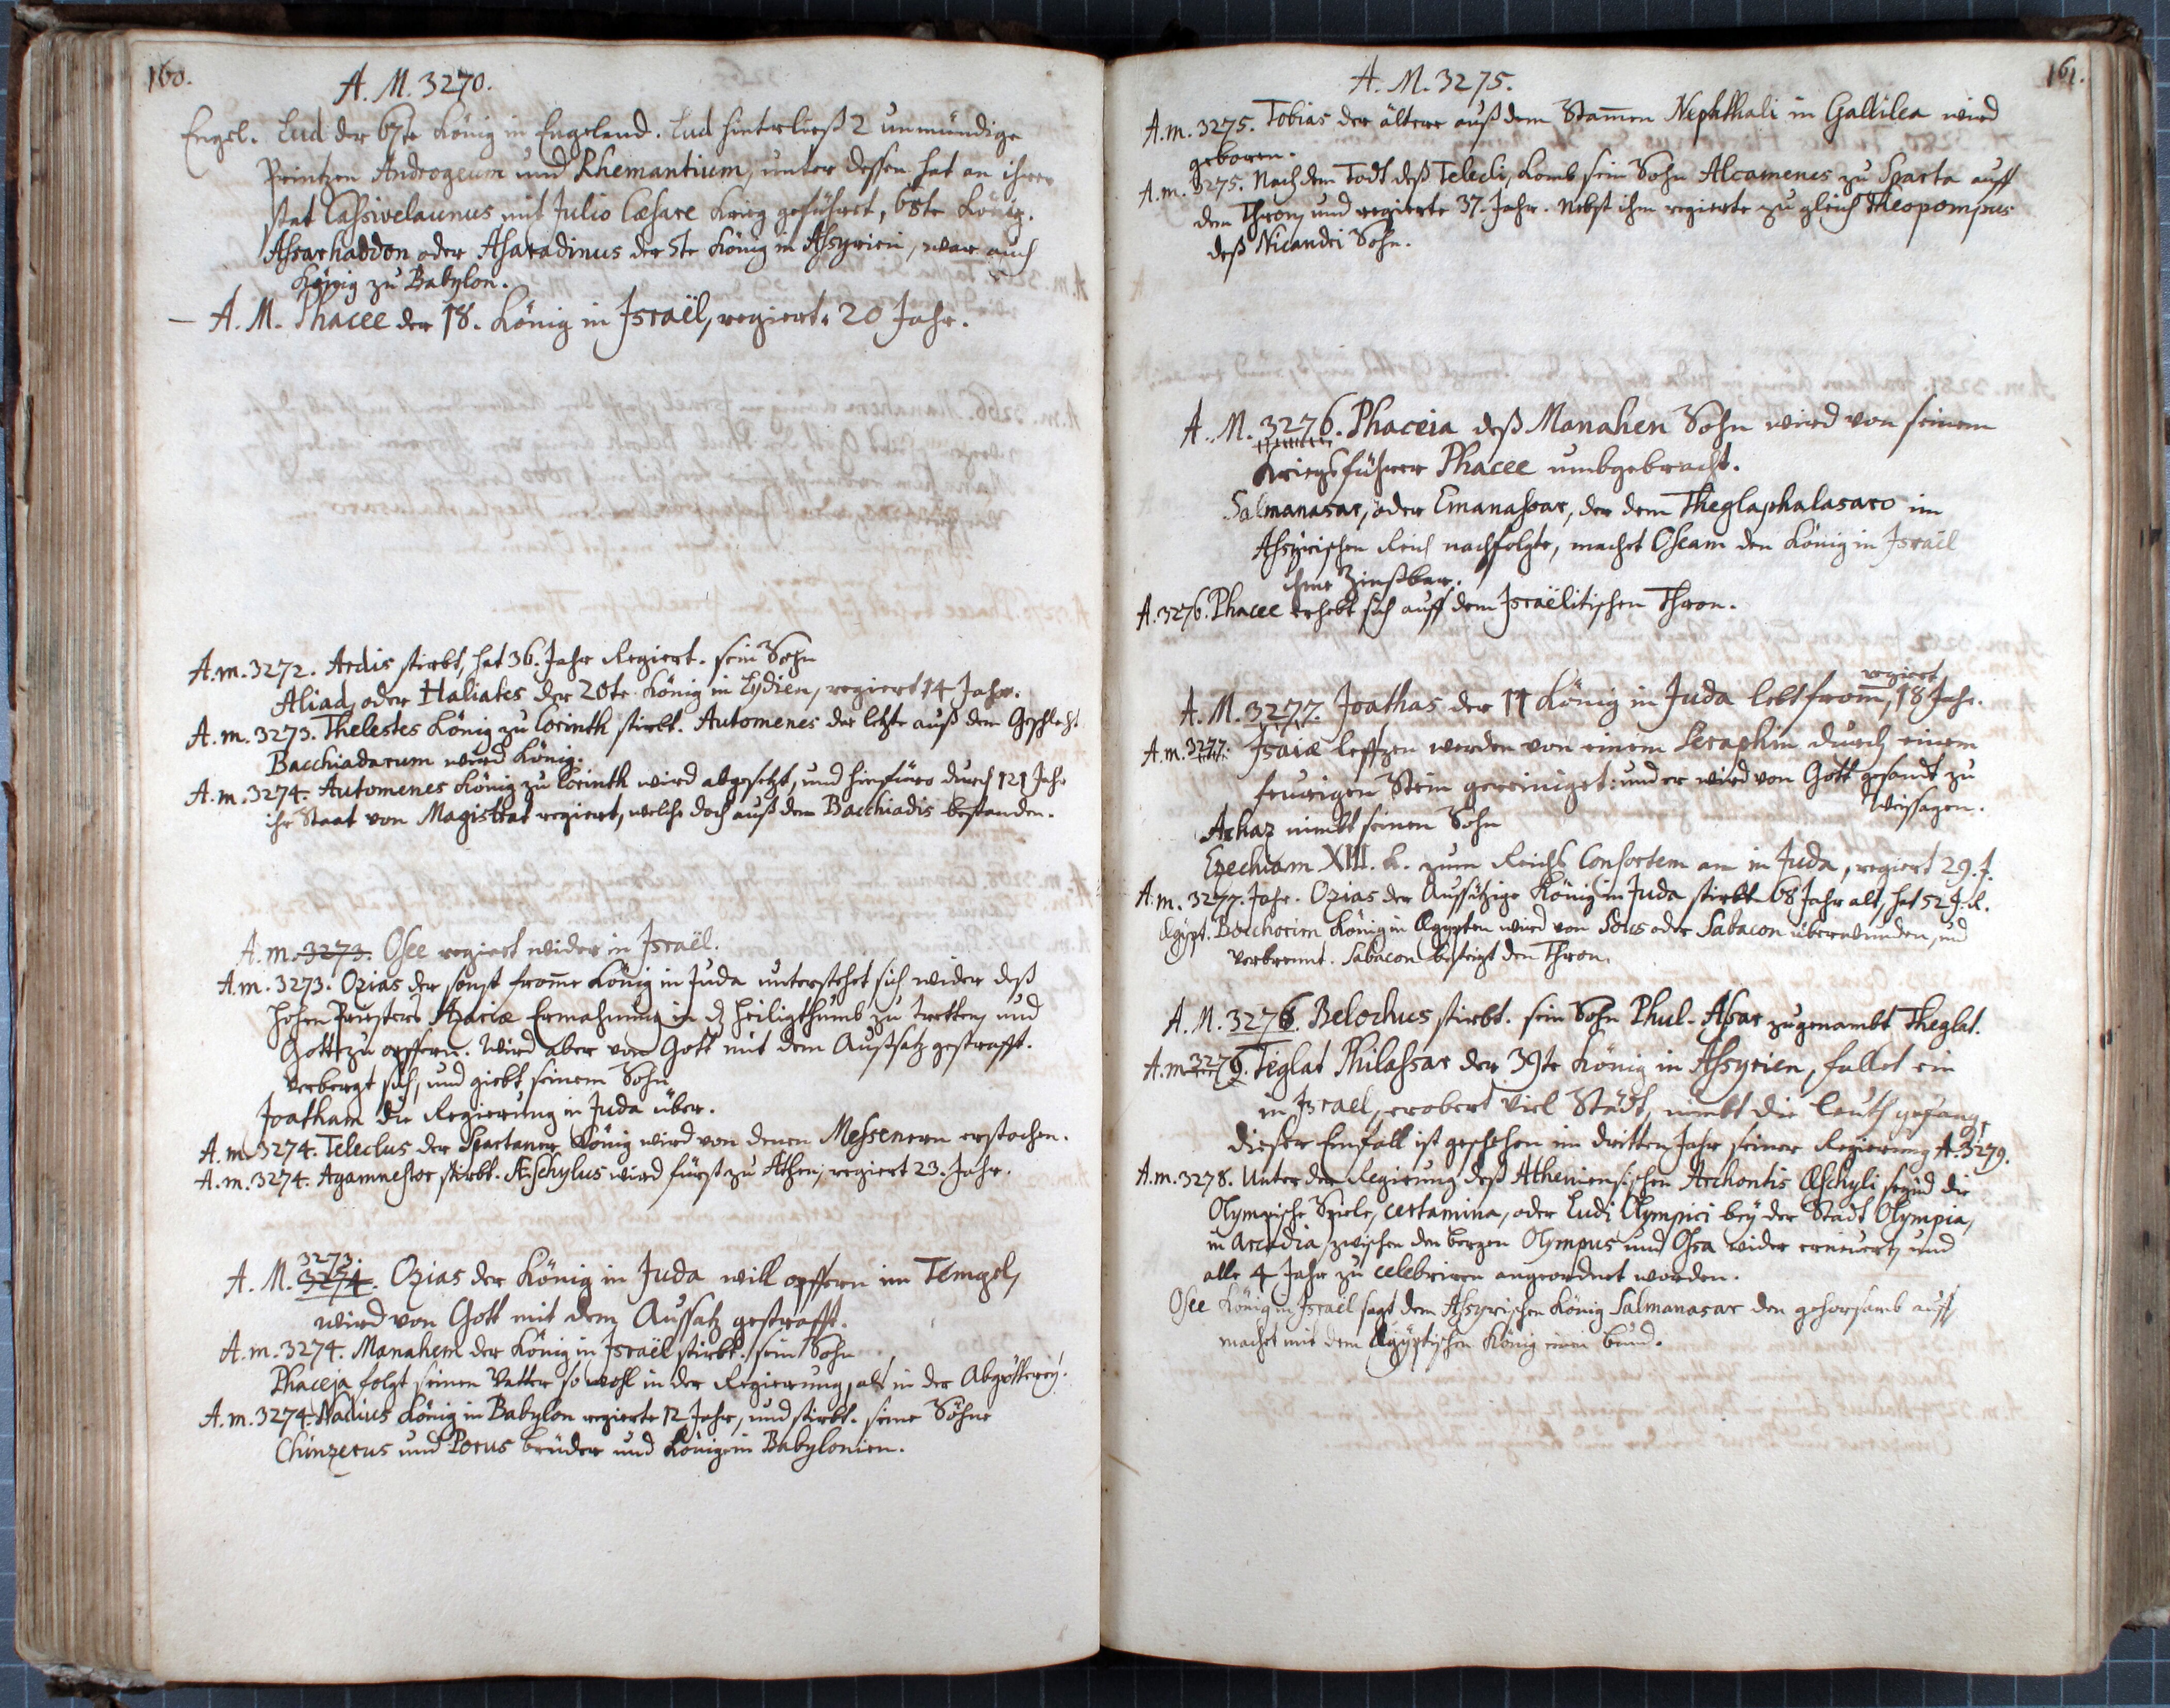 160.
A. M. 3270.
Engel. Lud der 67te König in Engeland. Lud hinterließ 2 unmündige
Printzen Androgeum und Rhemantium, unter dessen hat an ihrer
stat Cassivelaunus mit Julio Cæsare Krieg geführet, 68te König.
Assarhaddon oder Asaradinus der 5te König in Assyrien, war auch
König zu Babylon.
— A. M. Phacee der 18. König in Israël, regiert. 20 Jahr.
A. m. 3272. Ardis stirbt, hat 36. Jahr Regiert. sein Sohn
Aliad, oder Haliates der 20te König in Lydien, regiert 14 Jahr.
A. m. 3273. Thelestes König zu Corinth stirbt. Automenes der letzte auß dem Geschlecht
Bacchiadarum wird König.
A. m. 3274. Automenes König zu Corinth wird abgesetzt, und hinfüro durch 121 Jahr
ihr Staat von Magistrat regiert, welche doch auß dem Bacchiadis bestanden.
A. m. 3273. Osee regiert wider in Israël.
A. m. 3273. Ozias der sonst from̄e König in Juda unterstehet sich wider deß
Hohen Priesters Azariæ Ermahnung in d Heiligthumb zu tretten, und
Gott zu opffern. Wird aber von Gott mit dem Aussatz gestrafft.
verbergt sich, und giebt seinem Sohn
Joatham die Regierung in Juda über.
A. m. 3274. Teleclus der Spartaner König wird von denen Messenern erstochen.
A. m. 3274. Agamnestor stirbt. Æschylus wird fürst zu Athen, regiert 23. Jahr.
3273.
A. M. 3274. Ozias der König in Juda will opffern im Tempel,
wird von Gott mit dem Aussatz gestrafft.
A. m. 3274. Manahem der König in Israël stirbt. sein Sohn
Phaceja folgt seinen Vatter so wohl in der Regierung, als in der Abgötterey.
A. m. 3274. Nadius König in Babylon regierte 12 Jahr, und stirbt. seine Söhne
Chinzerus und Porus brüder und Könige in Babylonien.
161.
A. M. 3275.
A. m. 3275. Tobias der ältere auß dem Stam̄en Nephthali in Gallilea wird
geboren.
A. m. 3275. Nach dem Todt deß Telecli, komb sein Sohn Alcamenes zu Sparta auff
den Thron, und regierte 37. Jahr. Nebst ihm regierte zu gleich Theopompus
deß Nicandri Sohn.
A. M. 3276. Phaceia deß Manahen Sohn wird von seinem
Kriegsführer Phacee umbgebracht.
Salmanasar, oder Emanassar, der dem Theglaphalasaro im
Assyrischen Reich nachfolgte, machet Oseam den König in Israël
ihme Zinßbar.
A. 3276. Phacee erhebt sich auff dem Israëlitischen Thron.
regiert
A. M. 3277. Joathas der 11 König in Juda lebt from̄, 18 Jahr.
A. m. 3277. Isaiæ leffzen werden von einem Seraphin durch einem
feurigen Stein gereiniget: und er wird von Gott gesandt zu
Weissagen.
Achaz nimbt seinen Sohn
Ezechiam XIII. K. zum Reichs Consortem an in Juda, regiert 29. J.
A. m. 3277. Jahr. Ozias der Aussätzige König in Juda stirbt 68 Jahr alt, hat 52 J. R.
Ægypt. Bocchorim König in Ægypten wird von Sous oder Sabacon überwunden, und
verbrennt. Sabacon besteigt den Thron.
A. M. 3276. Belochus stirbt. sein Sohn Phul-Assar zugenambt Theglat.
A. m. 3276. Teglat Philassar der 39te König in Assyrien, fallet ein
in Israel, erobert viel Städt, nimbt die Leuth gefang,
dieser Einfall ist geschehen im dritten Jahr seiner Regierung A. 3279.
A. m. 3278. Unter der Regierung deß Atheniensischen Archontis Æschyli seynd die
Olympische Spiele, certamina, oder Ludi Olympici bey der Stadt Olympia,
in Arcadia, zwischen den bergen Olympus und Ossa wider erneuert, und
alle 4 Jahr zu celebriren angeordnet worden.
Osee König in Israel sagt dem Assyrischen König Salmanasar den gehorsamb auff,
machet mit dem Ægyptischen König einen bund.